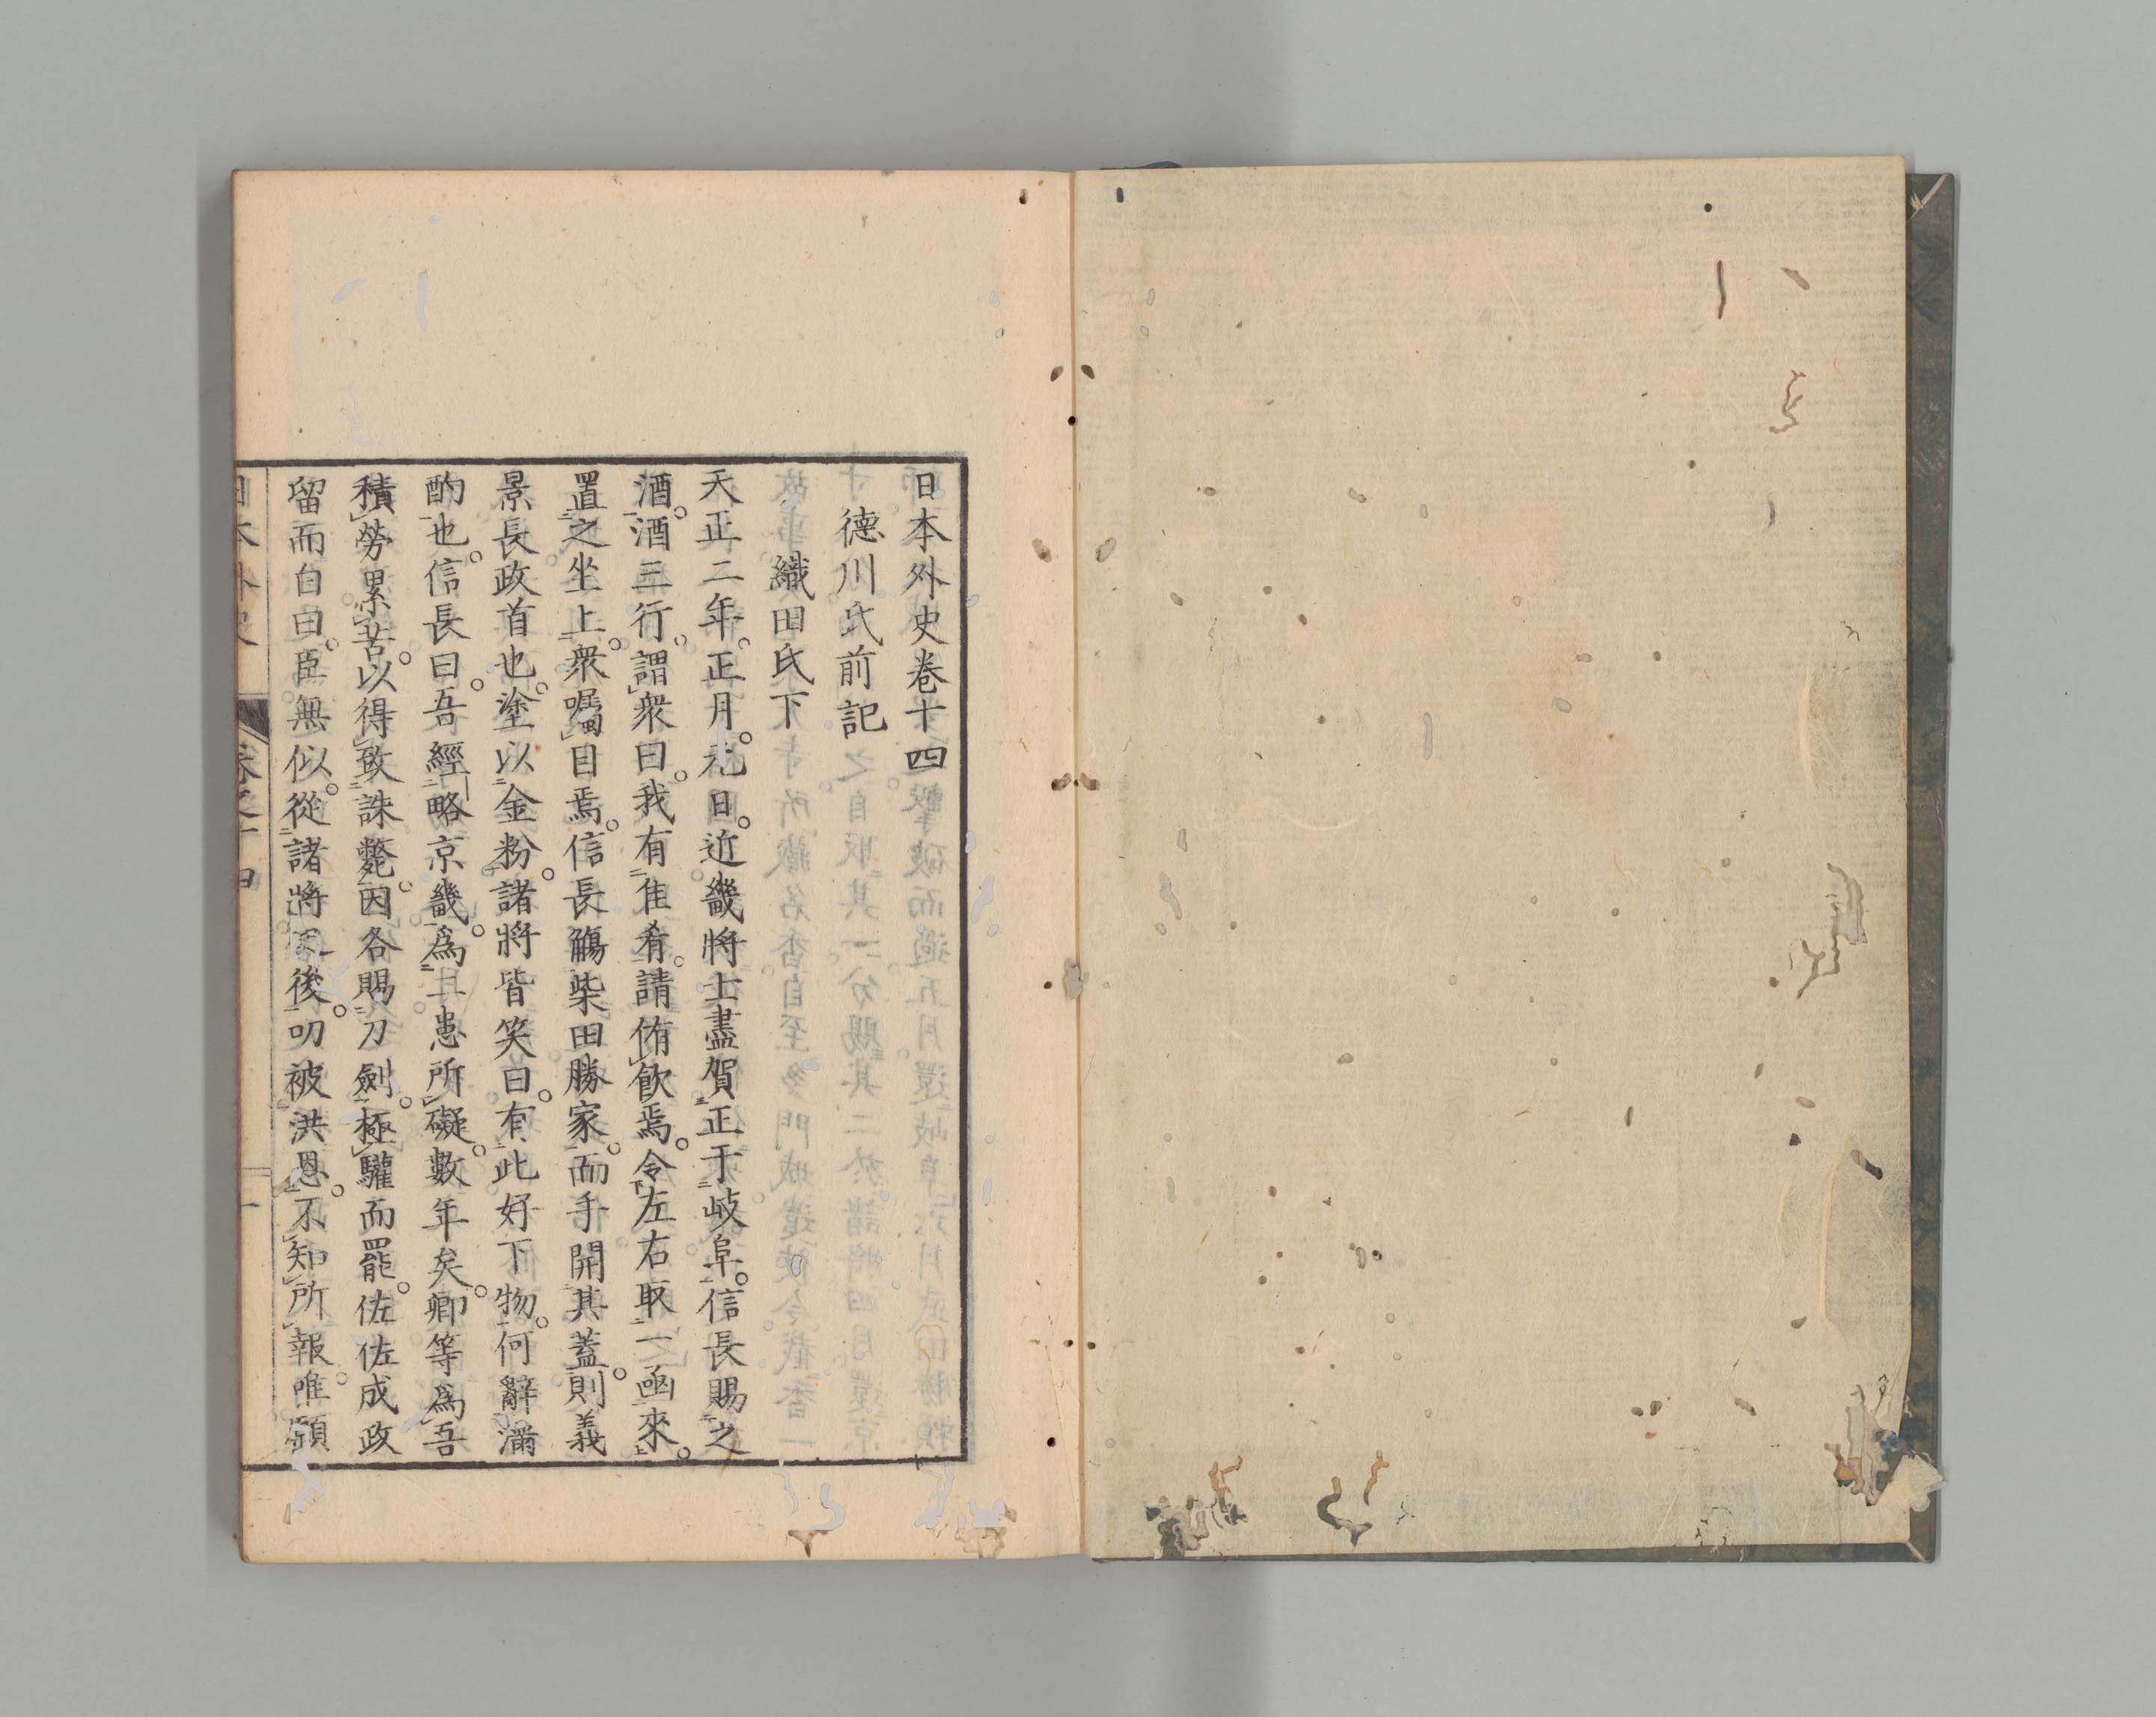 日本外史卷十四
德川氏前記
織田氏下
天正二年。正月。元日。近畿將士盡賀正于岐阜。信長賜之
酒。酒三行。謂衆曰。我有佳肴。請侑飲焉。令左右取一函來。
置之坐上。衆囑目焉。信長觴柴田勝家。而手開其蓋。則義
景長政首也。塗以金粉。諸將皆笑曰。有此好下物。何辭滿
酌也。信長曰。吾經略京畿。爲患所礙。數年矣。卿等爲吾
積勞累苦。以得致誅斃。因各賜刀劍。極驩而罷。佐佐成政
留而白曰。臣無似。從諸將後。叨被洪恩。不知所報。唯願
日本外史 卷之十四